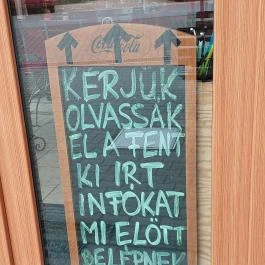 Coca-Cola
KÉRJÜK
OLVASSÁK
EL A FENT
KI ÍRT
INFÓKAT
MI ELŐTT
BELÉPNEK